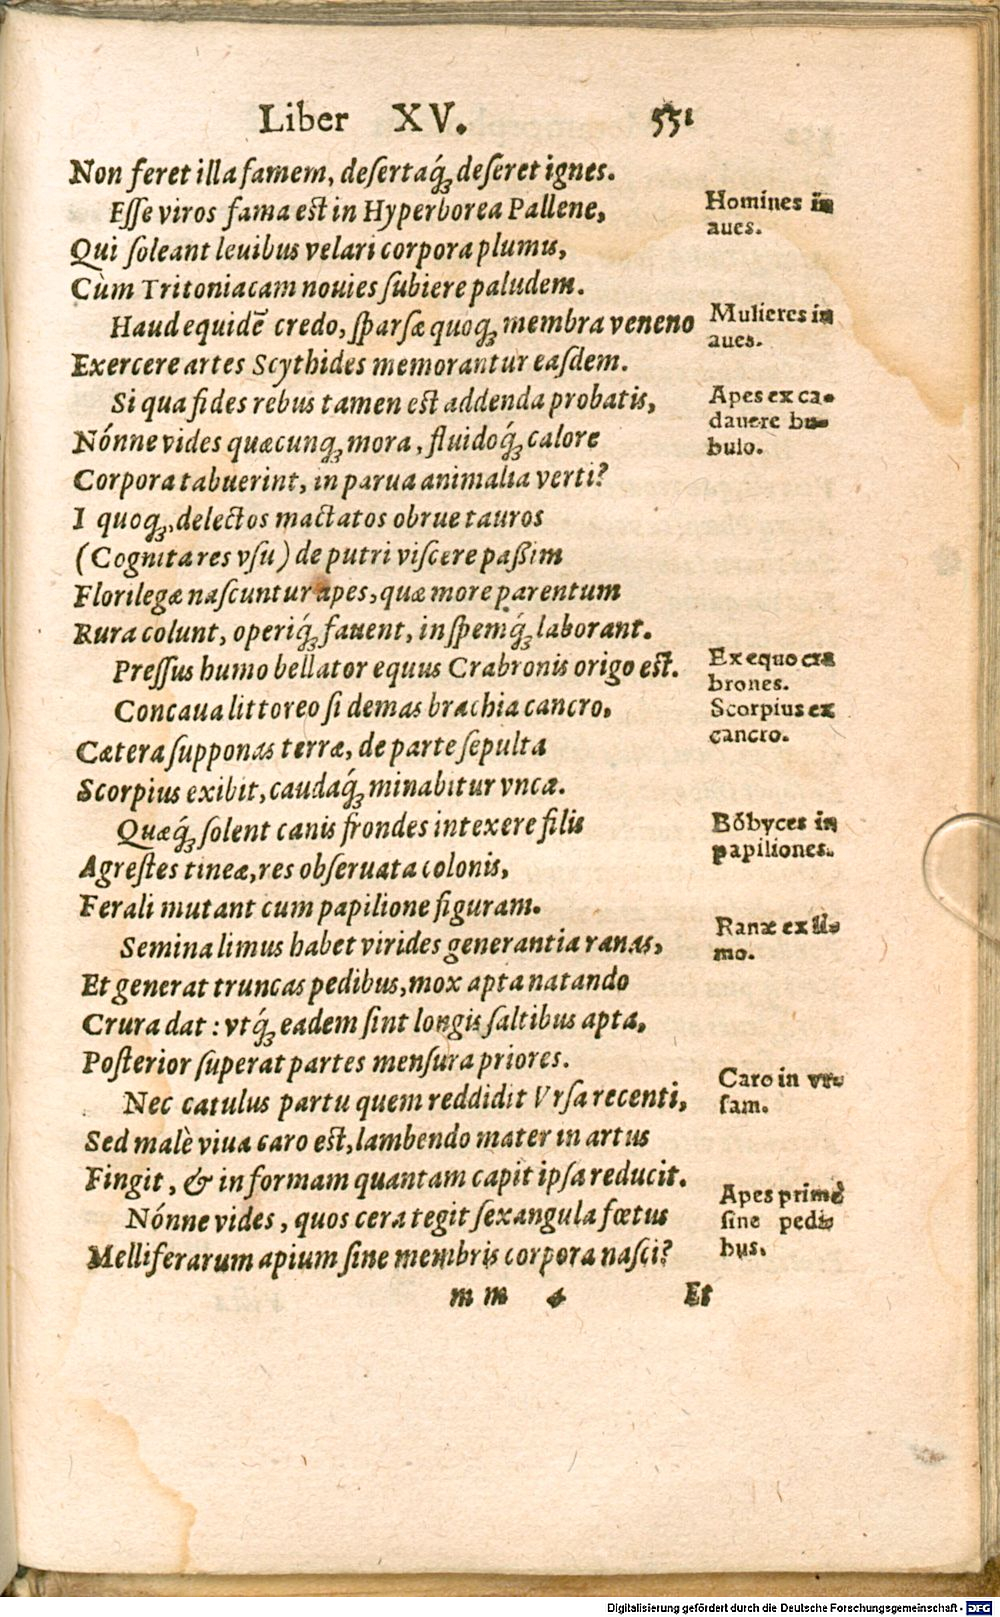 Liber XV. 551
Non feret illa famem, desertaq́; deseret ignes.
Esse viros fama est in Hyperborea Pallene,
Homines in
aues.
Qui soleant leuibus velari corpora plumis,
Cùm Tritoniacam nouies subiere paludem.
Haud equidē credo, sparsæ quoq; membra veneno
Mulieres in
aues.
Exercere artes Scythides memorantur easdem.
Si qua fides rebus tamen est addenda probatis,
Apes ex ca-
dauere bu-
bulo.
Nónne vides quæcunq; mora, fluidoq́; calore
Corpora tabuerint, in parua animalia verti?
I quoq;, delectos mactatos obrue tauros
(Cognita res vsu) de putri viscere paßim
Florilegæ nascuntur apes, quæ more parentum
Rura colunt, operiq́; fauent, in spemq́; laborant.
Pressus humo bellator equus Crabronis origo est.
Ex equo cra
brones.
Concaua littoreo si demas brachia cancro,
Scorpius ex
cancro.
Cætera supponas terræ, de parte sepulta
Scorpius exibit, caudaq́; minabitur vnca.
Quæq́; solent canis frondes intexere filis
Bōbyces in
papiliones.
Agrestes tineæ, res obseruata colonis,
Ferali mutant cum papilione figuram.
Semina limus habet virides generantia ranas,
Ranæ ex li-
mo.
Et generat truncas pedibus, mox apta natando
Crura dat: vtq́; eadem sint longis saltibus apta,
Posterior superat partes mensura priores.
Nec catulus partu quem reddidit Vrsa recenti,
Caro in vr-
sam.
Sed malè viua caro est, lambendo mater in artus
Fingit, & in formam quantam capit ipsa reducit.
Nónne vides, quos cera tegit sexangula fœtus
Apes primò
sine pedi-
bus.
Melliferarum apium sine membris corpora nasci?
mm 4 Et
Digitalisierung gefördert durch die Deutsche Forschungsgemeinschaft - DFG